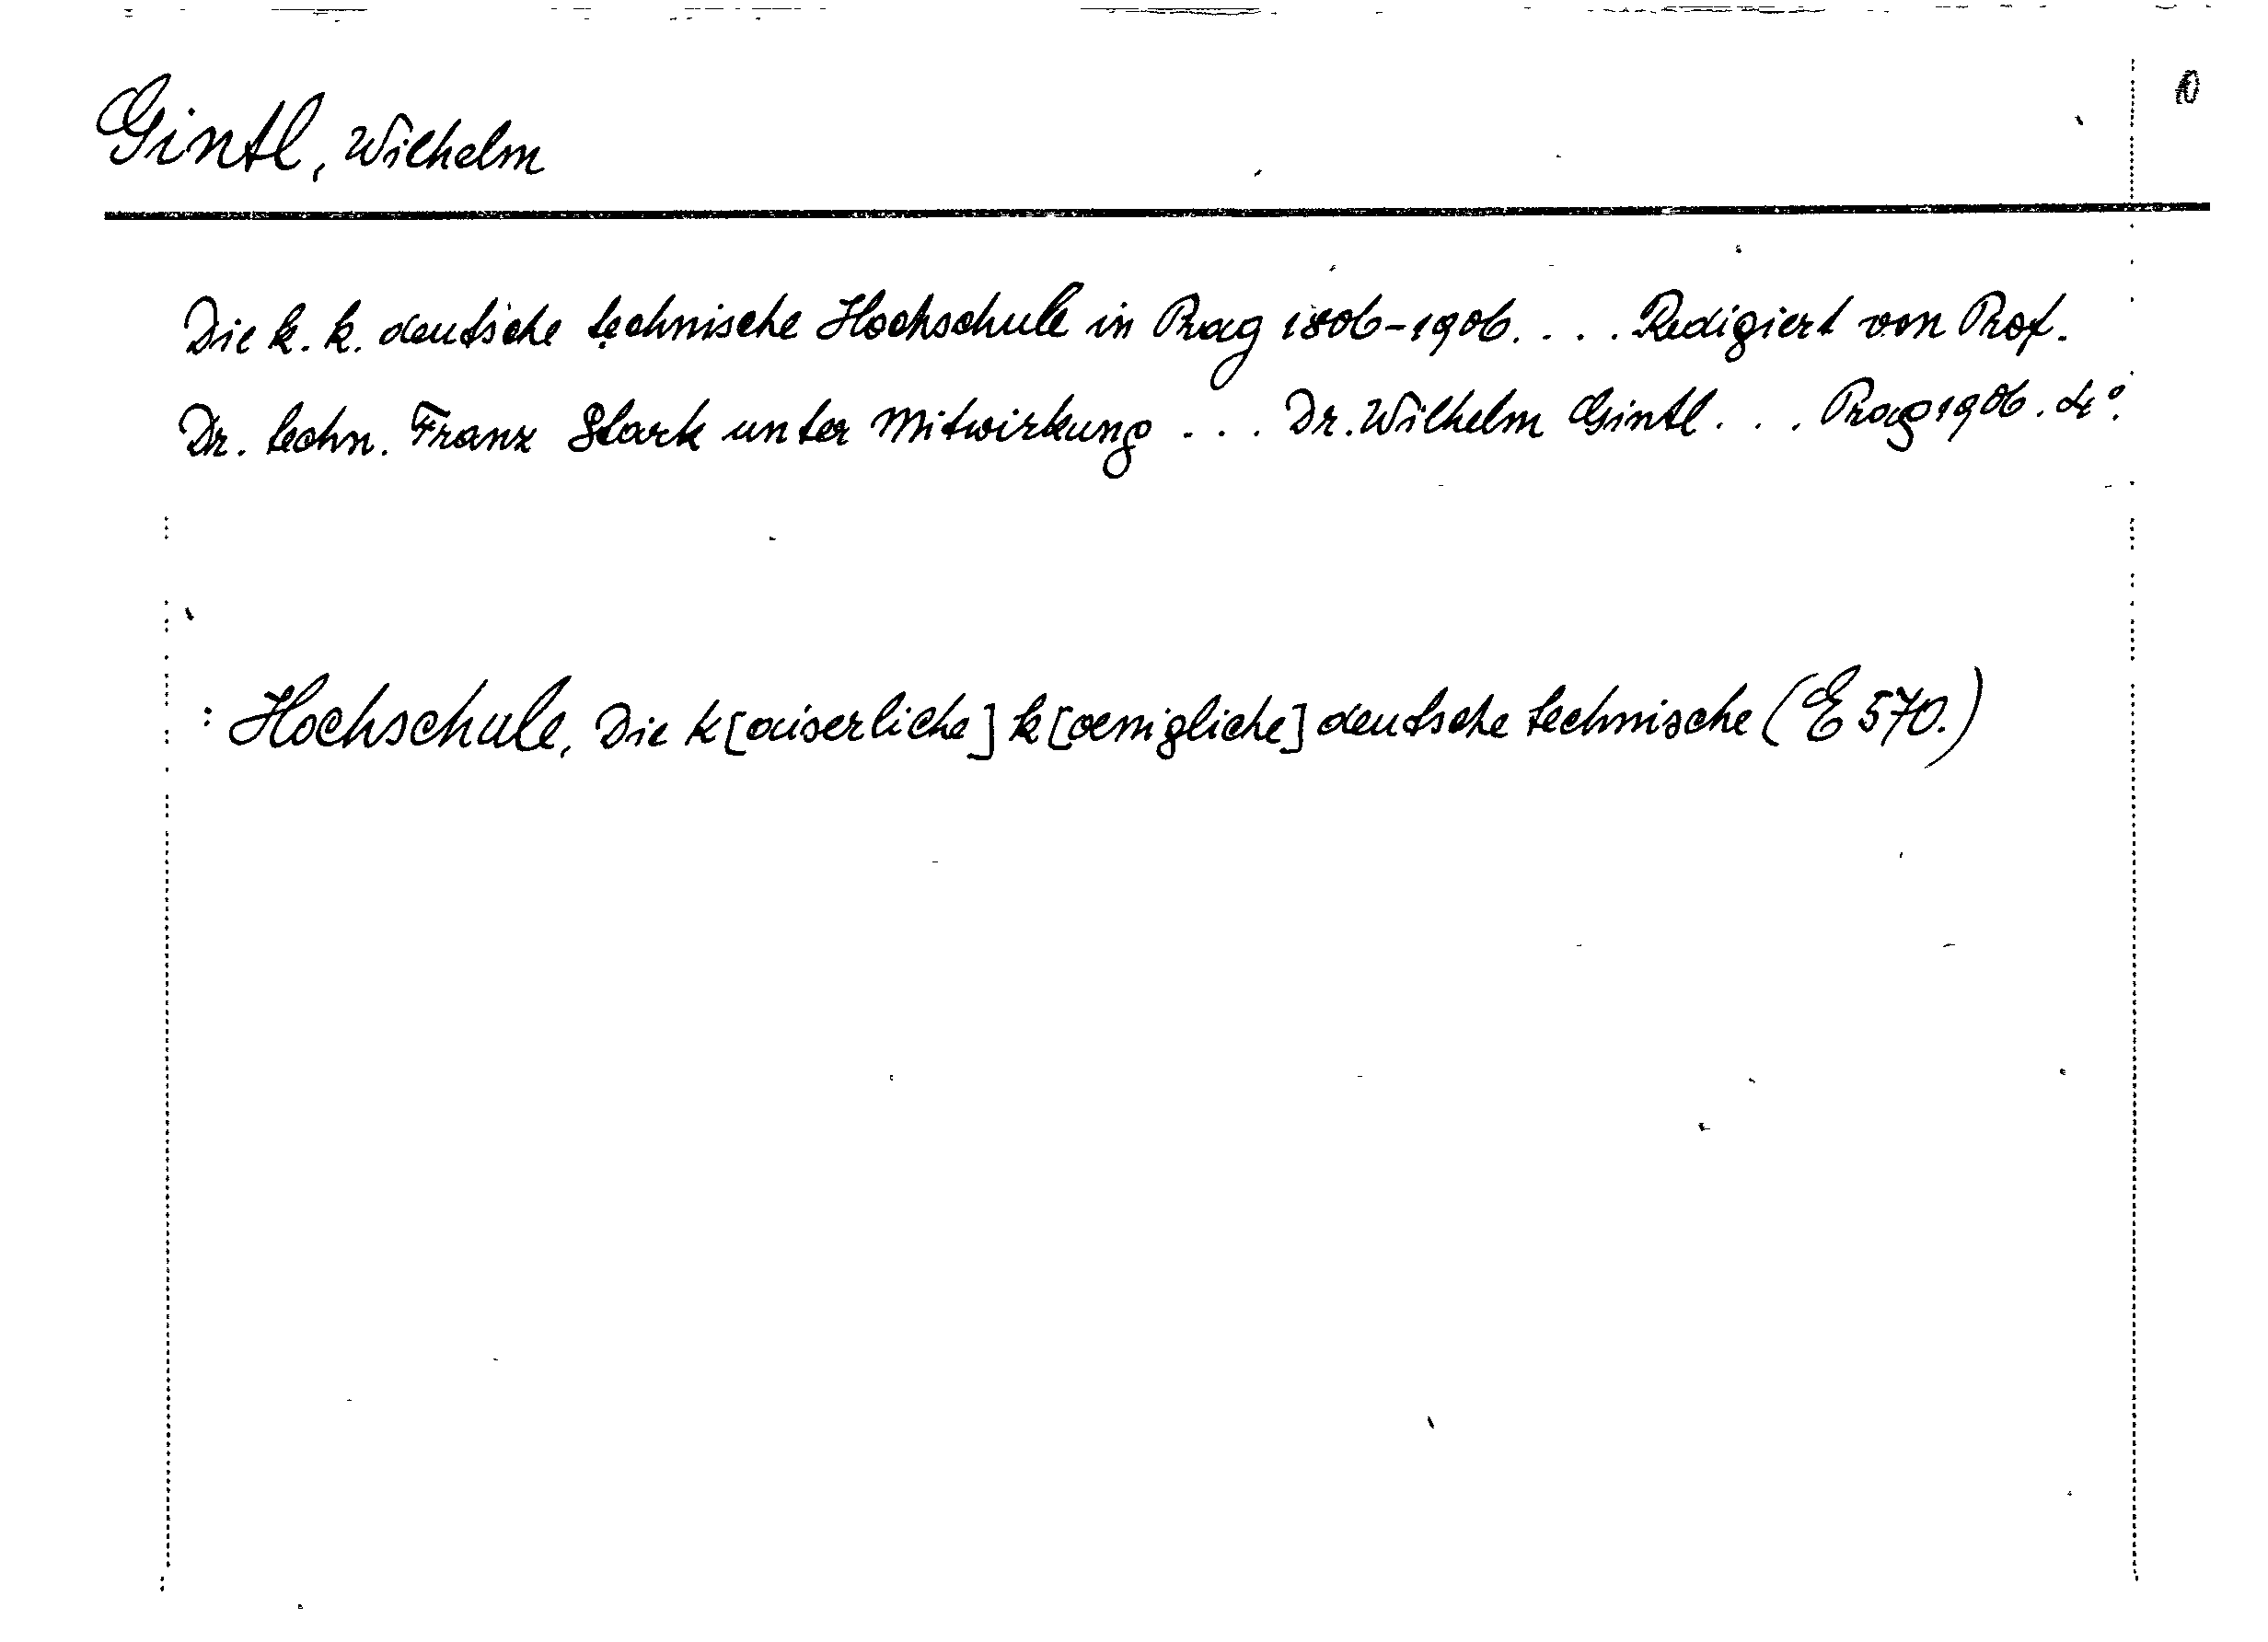 Gintl, Wilhelm
Die k. k. deutsche technische Hochschule in Prag 1806-1906. . . . Redigiert von Prof.
Dr. techn. Franz Stark unter Mitwirkung . . . Dr. Wilhelm Gintl . . . Prag 1906. 4°.
: Hochschule, Die k[aiserliche] k[oenigliche] deutsche technische (E 570.)